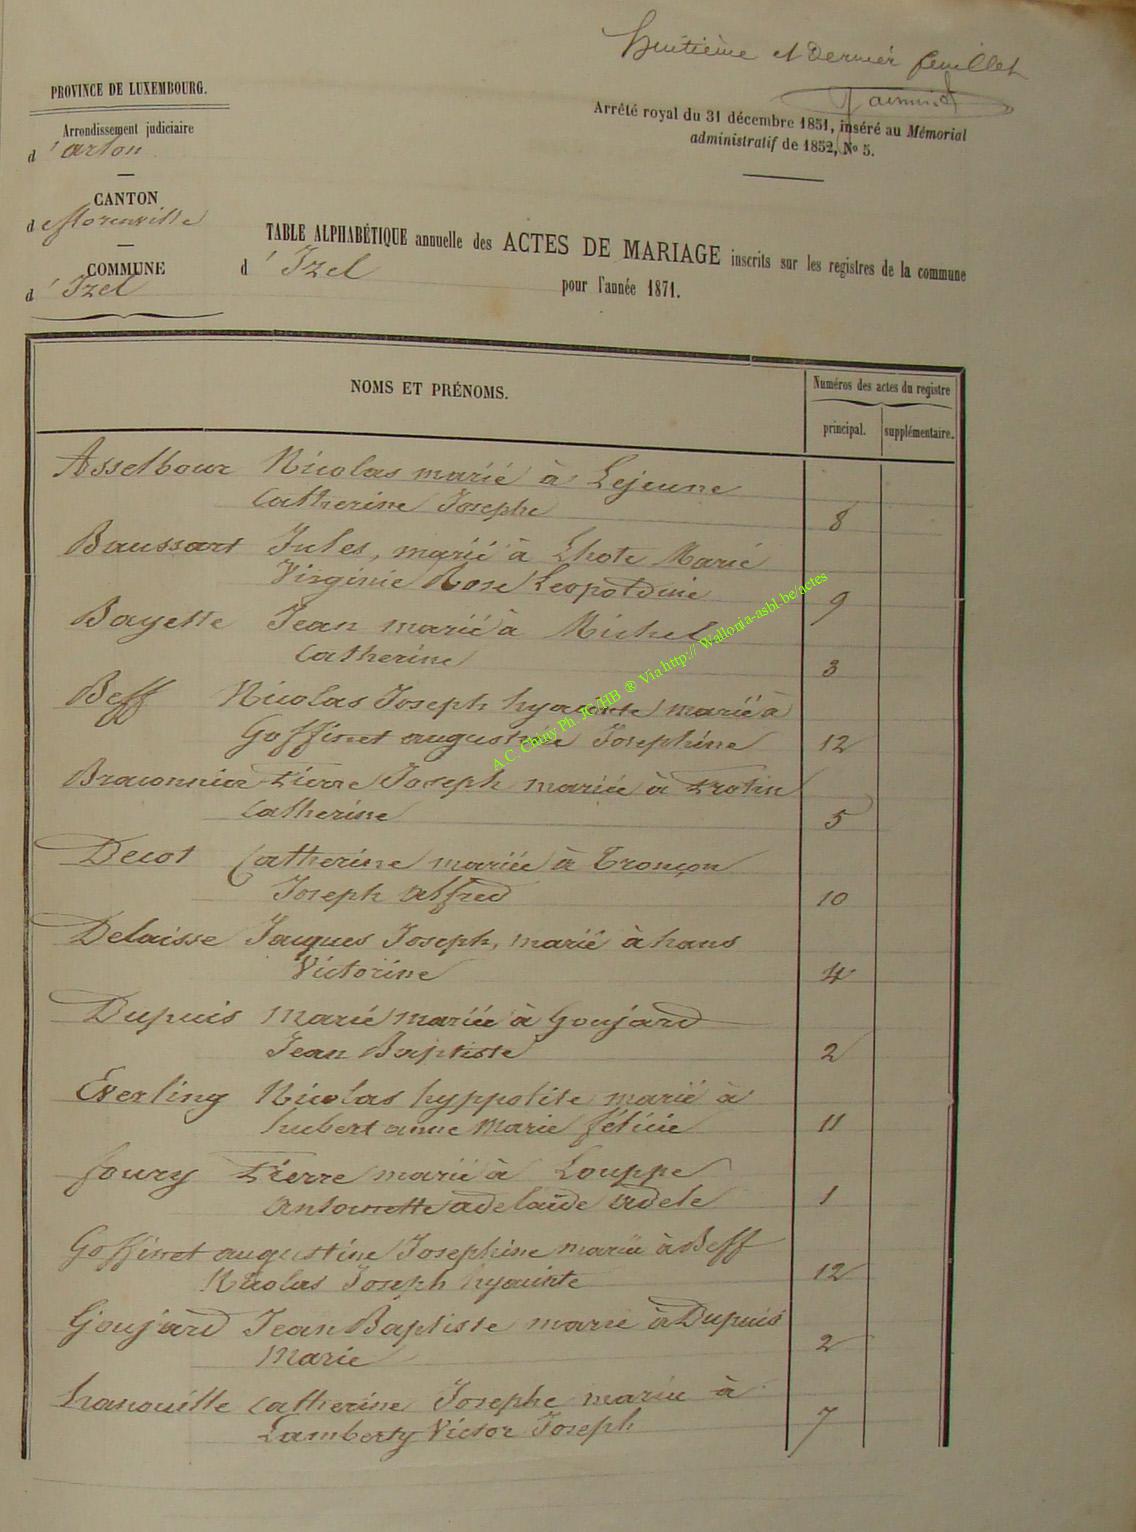 huitième et Dernier feuillet
PROVINCE DE LUXEMBOURG.
Arrêté royal du 31 décembre 1851, inséré au Mémorial
administratif de 1852, No 5.
Arrondissement judiciaire
d'arlon
CANTON
de florenville
COMMUNE
d'Izel
TABLE ALPHABÉTIQUE annuelle des ACTES DE MARIAGE inscrits sur les registres de la commune
d'Izel pour l'année 1871.
NOMS ET PRÉNOMS.
Numéros des actes du registre
principal. supplémentaire.
Asselbour Nicolas marié à Lejeune
Catherine Josephe 8
Baussart Jules, marié à Lhote Marie
Virginie Rose Leopoldine 9
Bayette Jean marié à Michel
Catherine 3
Beff Nicolas Joseph hyacinte marié à
Goffinet augustine Josephine 12
Braconnier Pierre Joseph mariée à Protin
Catherine 5
Decot Catherine mariée à Tronçon
Joseph alfred 10
Delaisse Jacques Joseph, marié à hans
Victorine 4
Dupuis Marie mariée à Goujard
Jean Baptiste 2
Everling Nicolas hyppolite marié à
hubert anne Marie félicie 11
foury Pierre marié à Louppe
Antoinette adelaïde adele 1
Goffinet augustine Josephine mariée à Beff
Nicolas Joseph hyacinte 12
Goujard Jean Baptiste marié à Dupuis
Marie 2
hanouille Catherine Josephe mariée à
Lamberty Victor Joseph 7
A.C. Chiny Ph. JC/HB ® Via http:// Wallonia-asbl-be/actes